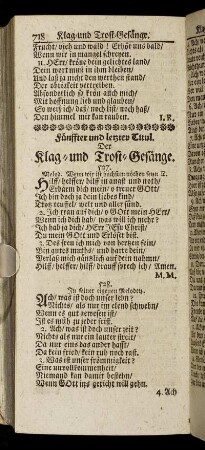 718 Klag-und Trost-Gesänge.
Frucht/ vieh und wald! Erhör uns bald/
Wenn wir in mangel schreyen.
11. HErr/ kröne dein geliebtes land/
Dein wort muß in ihm bleiben/
Und laß ja nicht den werthen stand
Der obrigkeit vertreiben.
Absonderlich so krön auch mich/
Mit hoffnung lieb und glauben/
So werd ich/ daß/ noch hilf noch haß/
Den himmel mir kan rauben. I. R.
Fünffter und letzter Titul.
Der
Klag- und Trost-Gesänge.
527.
Melod. Wenn wir in höchsten nöthen seyn &c.
Hilf/ helffer/ hilf in angst und noth/
Erbarm dich mein/ o treuer GOtt/
Ich bin doch ja dein liebes kind/
Trotz teuffel/ welt und aller sünd.
2. Ich trau auf dich/ o GOtt mein HErr/
Wenn ich dich hab/ was will ich mehr?
Ich hab ja dich/ HErr JEsu Christ/
Du mein GOtt und Erlöser bist.
3. Des freu ich mich von hertzen fein/
Bin gutes muths/ und harre dein/
Verlaß mich gäntzlich auf dein nahmn/
Hilf/ helffer/ hilf/ drauf sprech ich/ Amen.
M. M.
528.
In seiner eigenen Melodey.
Ach/ was ist doch unser lebn?
Nichts/ als nur im elend schwebn/
Wenn es gut gewesen ist/
Ist es müh zu jeder frist.
2. Ach/ was ist doch unser zeit?
Nichts als nur ein lauter streit/
Da nur eins das ander hasst/
Da kein fried/ kein ruh noch rast.
3. Was ist unser frömmigkeit?
Eine unvollkommenheit/
Niemand kan damit bestehn/
Wenn GOtt ins gericht will gehn.
4. Ach